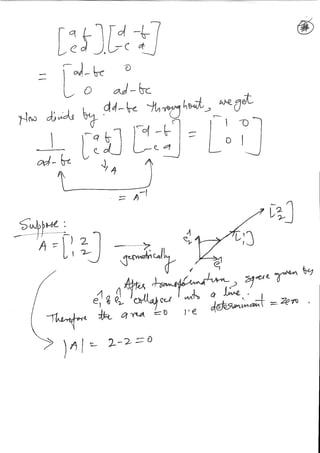 [a b
c d] [d -b
-c a]
= [ad-bc 0
0 ad-bc]
Now divide by ad-bc throughout, we get
1/ad-bc [a b
c d] [d -b
-c a] = [1 0
0 1]
A
= A⁻¹
Suppose :
A = [1 2
1 2]
geometrically
e₂
e₁
[1
1]
[2
2]
After transformation, space given by
e₁ & e₂ collapses into a line.
Therefore the area =0 i.e determinant = zero.
|A| = 2-2 = 0